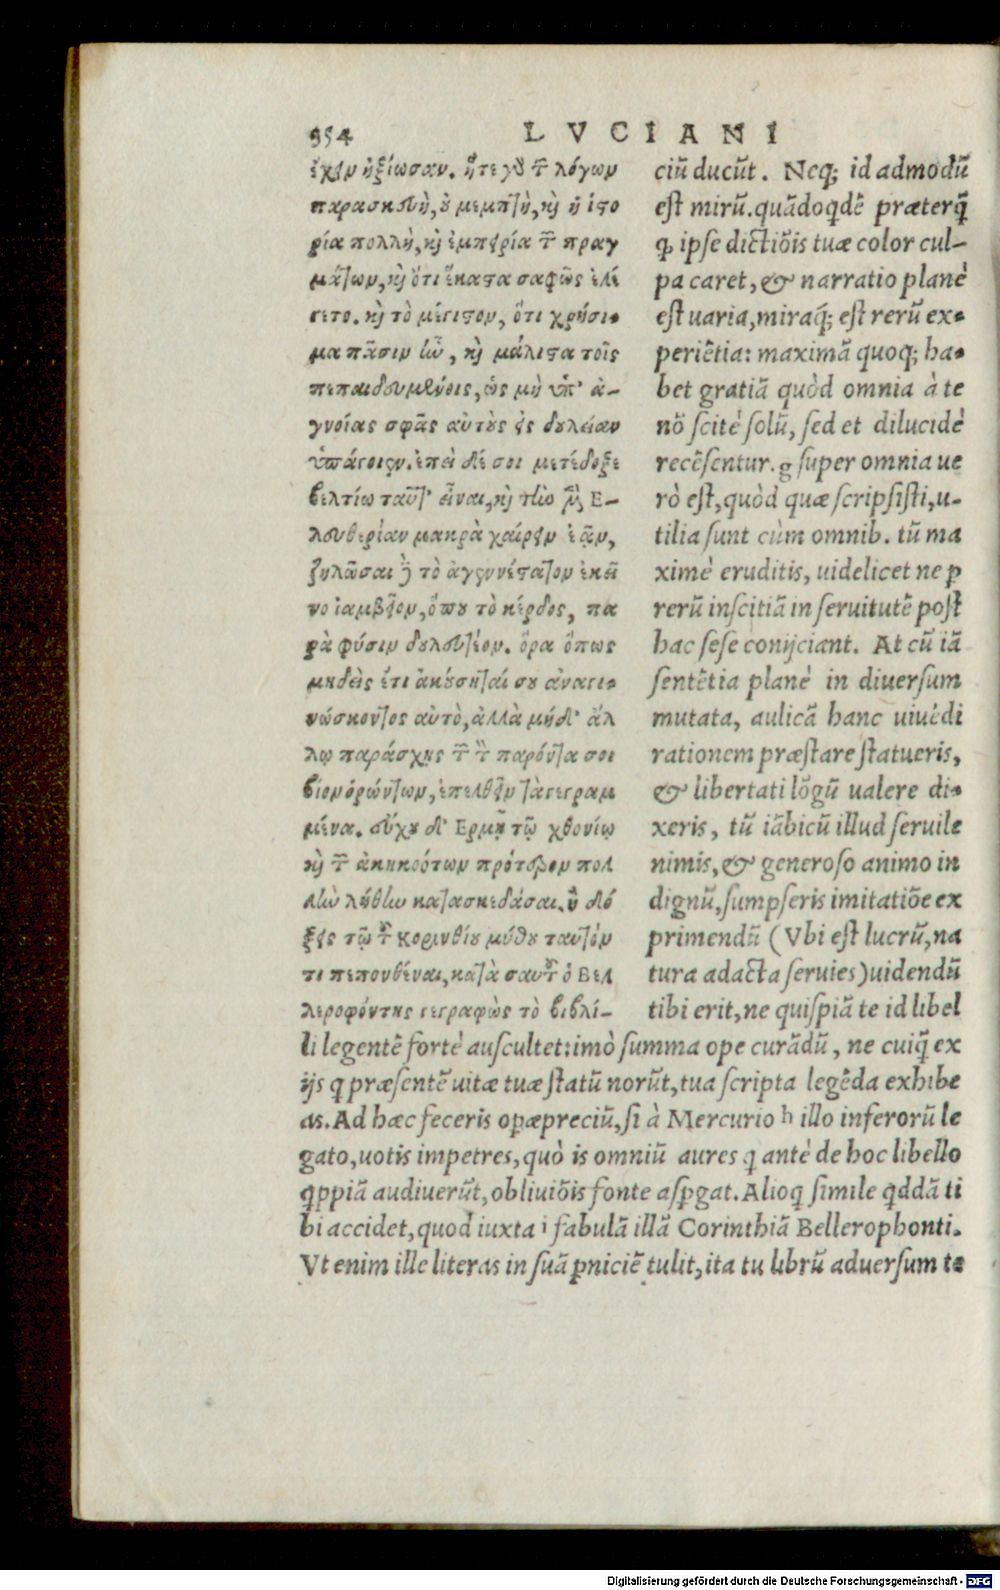 954
LVCIANI
ἔχειν ἠξίωσαν. ἥτε γὸ τ͂ λόγων
παρασκευὴ, ȣ̓ μεμπ̔ὴ, κ̀ ἡ ἱστο
ρία πολλὴ, κ̀ ἐμπειρία τ͂ πραγ
μάτων, κ̀ ὅτι ἕκαστα σαφῶς ἐλέ
γετο. κ̀ τὸ μέγιστον, ὅτι χρήσι-
μα πᾶσιν ἦν, κ̀ μάλιστα τοῖς
πεπαιδευμένοις, ὡς μὴ ὑπ' ἀ-
γνοίας σφᾶς αὐτȣ̀ς εἰς δȣλείαν
ὑπάγοιεν. ἐπεὶ δέ σοι μετέδοξε
βελτίω ταῦτ' εἶναι, κ̀ τὴν μ̀ Ε-
λευθερίαν μακρὰ χαίρειν ἐᾶν,
ζηλῶσαι ὃ τὸ ἀγεννέστατον ἐκεῖ
νο ἰαμβεῖον, ὅπȣ τὸ κέρδος, πα
ρὰ φύσιν δȣλευτέον. ὅρα ὅπως
μηδεὶς ἔτι ἀκȣ́σηταί σȣ ἀναγι-
νώσκοντος αὐτὸ, ἀλλὰ μήδ' ἄλ
λῳ παράσχῃς τ͂ τ̀ παρόντα σοι
βίον ὁρώντων, ἐπελθεῖν τὰ γεγραμ
μένα. εὔχȣ δ' Ερμῇ τῷ χθονίῳ
κ̀ τ͂ ἀκηκοότων πρότερον πολ
λὴν λήθην κατασκεδάσαι. ἢ δό
ξεις τῷ τ͂ Κορινθίȣ μύθȣ ταυτόν
τι πεπονθέναι, κατὰ σαυτ͂ ὁ Βελ
λεροφόντης γεγραφὼς τὸ βιβλί-
ciū ducūt. Neq; id admodū
est mirū. quādoqdē præterq̄
ꝙ ipse dictiōis tuæ color cul-
pa caret, & narratio planè
est uaria, miraq́; est rerū ex-
periētia: maximā quoq; ha-
bet gratiā quòd omnia à te
nō scitè solū, sed et dilucidè
recēsentur. g super omnia ue
rò est, quòd quæ scripsisti, u-
tilia sunt cùm omnib. tū ma
ximè eruditis, uidelicet ne ꝑ
rerū inscitiā in seruitutē post
hac sese conijciant. At cū iā
sentētia planè in diuersum
mutata, aulicā hanc uiuēdi
rationem præstare statueris,
& libertati lōgū ualere di-
xeris, tū iābicū illud seruile
nimis, & generoso animo in
dignū, sumpseris imitatiōe ex
primendū (Vbi est lucrū, na
tura adacta seruies) uidendū
tibi erit, ne quispiā te id libel
li legentē fortè auscultet: imò summa ope curādū, ne cuiq̄ ex
ijs q præsentē uitæ tuæ statū norūt, tua scripta legēda exhibe
as. Ad hæc feceris oꝑæpreciū, si à Mercurio h illo inferorū le
gato, uotis impetres, quò is omniū aures q antè de hoc libello
qppiā audiuerūt, obliuiōis fonte aspgat. Alioq simile qddā ti
bi accidet, quod iuxta i fabulā illā Corinthiā Bellerophonti.
Vt enim ille literas in suā ꝑniciē tulit, ita tu librū aduersum te
Digitalisierung gefördert durch die Deutsche Forschungsgemeinschaft - DFG